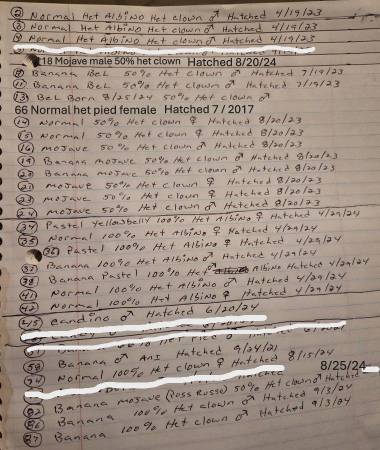 ② Normal Het Albino Het clown ♂ Hatched 4/19/23
③ Normal Het Albino Het clown ♂ Hatched 4/19/23
Normal Het Albino Het clown ♂ Hatched 4/19/23
18 Mojave male 50% het clown Hatched 8/20/24
Banana Bel 50% Het clown ♂ Hatched 7/19/23
⑪ Banana Bel 50% Het clown ♂ Hatched 7/19/23
⑬ Bel Born 8/25/24 50% Het clown ♂
66 Normal het pied female Hatched 7 / 2017
⑭ Normal 50% Het clown ♀ Hatched 8/20/23
⑮ Normal 50% Het clown ♀ Hatched 8/20/23
⑯ mojave 50% Het clown ♂ Hatched 8/20/23
⑲ Banana mojave 50% Het clown ♂ Hatched 8/20/23
Banana mojave 50% Het clown ♂ Hatched 8/20/23
㉑ mojave 50% Het clown ♀ Hatched 8/20/23
mojave 50% Het clown ♂ Hatched 8/20/23
㉔ mojave 50% Het clown ♂ Hatched 8/20/23
㉞ Pastel Yellowbelly 100% Het Albino ♀ Hatched 4/29/24
㉟ Normal 100% Het Albino ♀ Hatched 4/29/24
㊱ Pastel 100% Het Albino ♀ Hatched 4/29/24
㊲ Banana 100% Het Albino ♂ Hatched 4/29/24
Banana Pastel 100% Het Albino Hatched 4/29/24
㊶ Normal 100% Het Albino ♂ Hatched 4/29/24
㊷ Normal 100% Het Albino ♀ Hatched 4/29/24
㊺ candino ♂ Hatched 6/20/24
Banana ♂ Hatched 9/24/21
Normal 100% Het clown ♀ Hatched 8/15/24
8/25/24
Banana mojave 50% Het clown ♂ Hatched 9/3/24
Banana 100% Het clown ♂ Hatched 9/3/24
Banana 100% Het clown ♂ Hatched 9/3/24